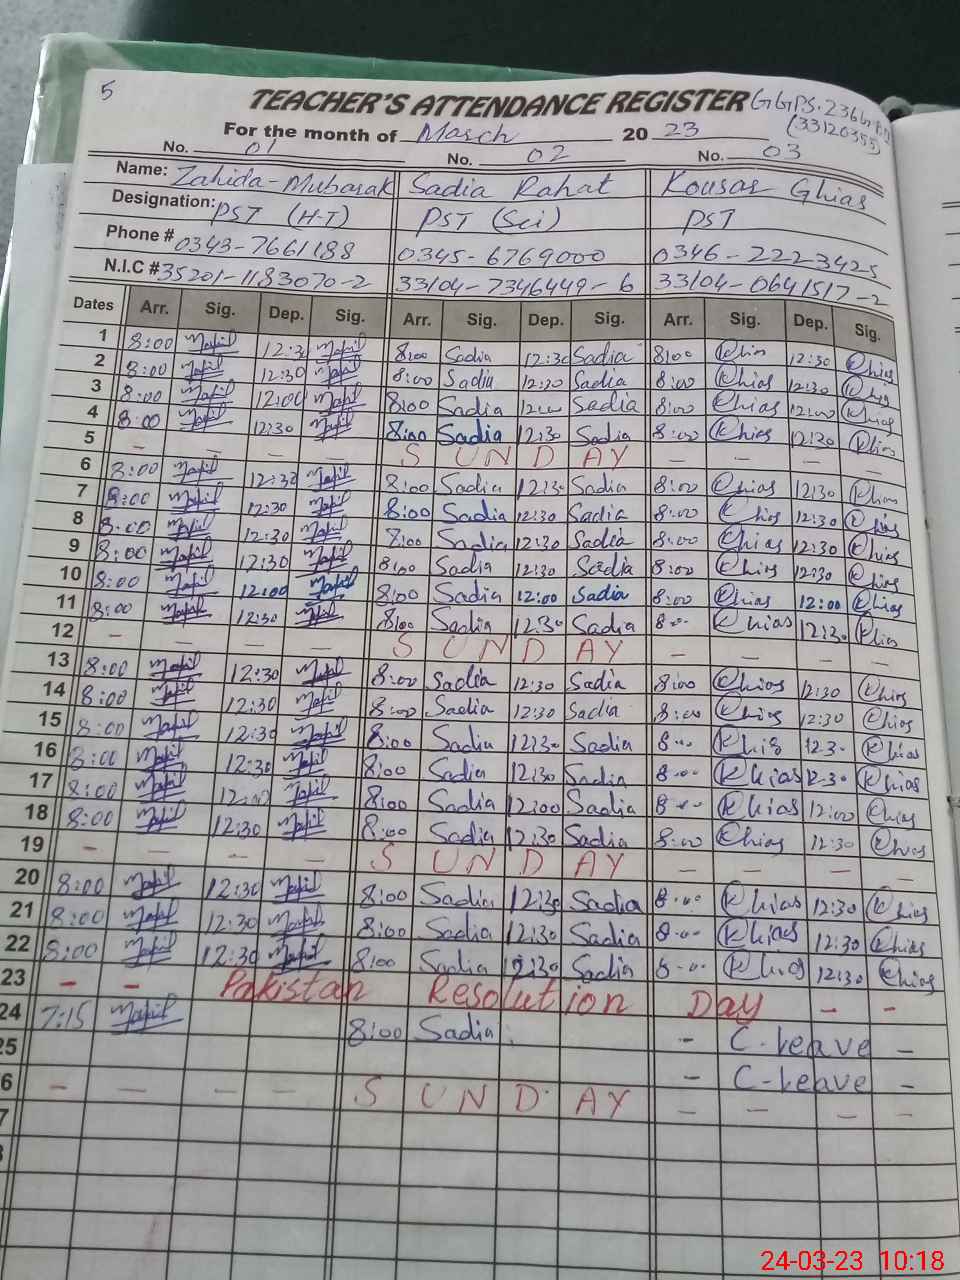 5
TEACHER'S ATTENDANCE REGISTER GGPS.236GB
For the month of March 20 23 (33120355)
No. 01 No. 02 No. 03
Name: Zahida-Mubarak Sadia Rahat Kousar Ghias
Designation: PST (H-T) PST (Sci) PST
Phone # 0343-7661188 0345-6769000 0346-2223425
N.I.C # 35201-1183070-2 33104-7346449-6 33104-0641517-2
Dates Arr. Sig. Dep. Sig. Arr. Sig. Dep. Sig. Arr. Sig. Dep. Sig.
1 8:00 12:30 8:00 Sadia 12:30 Sadia 8:00 Ghias 12:30 Ghias
2 8:00 12:30 8:00 Sadia 12:30 Sadia 8:00 Ghias 12:30 Ghias
3 8:00 12:00 8:00 Sadia 12:00 Sadia 8:00 Ghias 12:00 Khias
4 8:00 12:30 8:00 Sadia 12:30 Sadia 8:00 Khias 12:30 Khias
5 - - - - S U N D A Y - - - -
6 8:00 12:30 8:00 Sadia 12:30 Sadia 8:00 Ghias 12:30 Khias
7 8:00 12:30 8:00 Sadia 12:30 Sadia 8:00 Khias 12:30 Khias
8 8:00 12:30 8:00 Sadia 12:30 Sadia 8:00 Ghias 12:30 Khias
9 8:00 12:30 8:00 Sadia 12:30 Sadia 8:00 Khias 12:30 Khias
10 8:00 12:00 8:00 Sadia 12:00 Sadia 8:00 Ghias 12:00 Khias
11 8:00 12:30 8:00 Sadia 12:30 Sadia 8:00 Khias 12:30 Khias
12 - - - - S U N D A Y - - - -
13 8:00 12:30 8:00 Sadia 12:30 Sadia 8:00 Ghias 12:30 Khias
14 8:00 12:30 8:00 Sadia 12:30 Sadia 8:00 Khias 12:30 Ghias
15 8:00 12:30 8:00 Sadia 12:30 Sadia 8:00 Khias 12:30 Khias
16 8:00 12:30 8:00 Sadia 12:30 Sadia 8:00 Khias 12:30 Khias
17 8:00 12:00 8:00 Sadia 12:00 Sadia 8:00 Khias 12:00 Ghias
18 8:00 12:30 8:00 Sadia 12:30 Sadia 8:00 Ghias 12:30 Ghias
19 - - - - S U N D A Y - - - -
20 8:00 12:30 8:00 Sadia 12:30 Sadia 8:00 Khias 12:30 Khias
21 8:00 12:30 8:00 Sadia 12:30 Sadia 8:00 Khias 12:30 Khias
22 8:00 12:30 8:00 Sadia 12:30 Sadia 8:00 Khias 12:30 Ghias
23 - - Pakistan Resolution Day - -
24 7:15 8:00 Sadia - C-Leave -
25 - C-Leave -
6 - - - - S U N D A Y - - - -
7
24-03-23 10:18